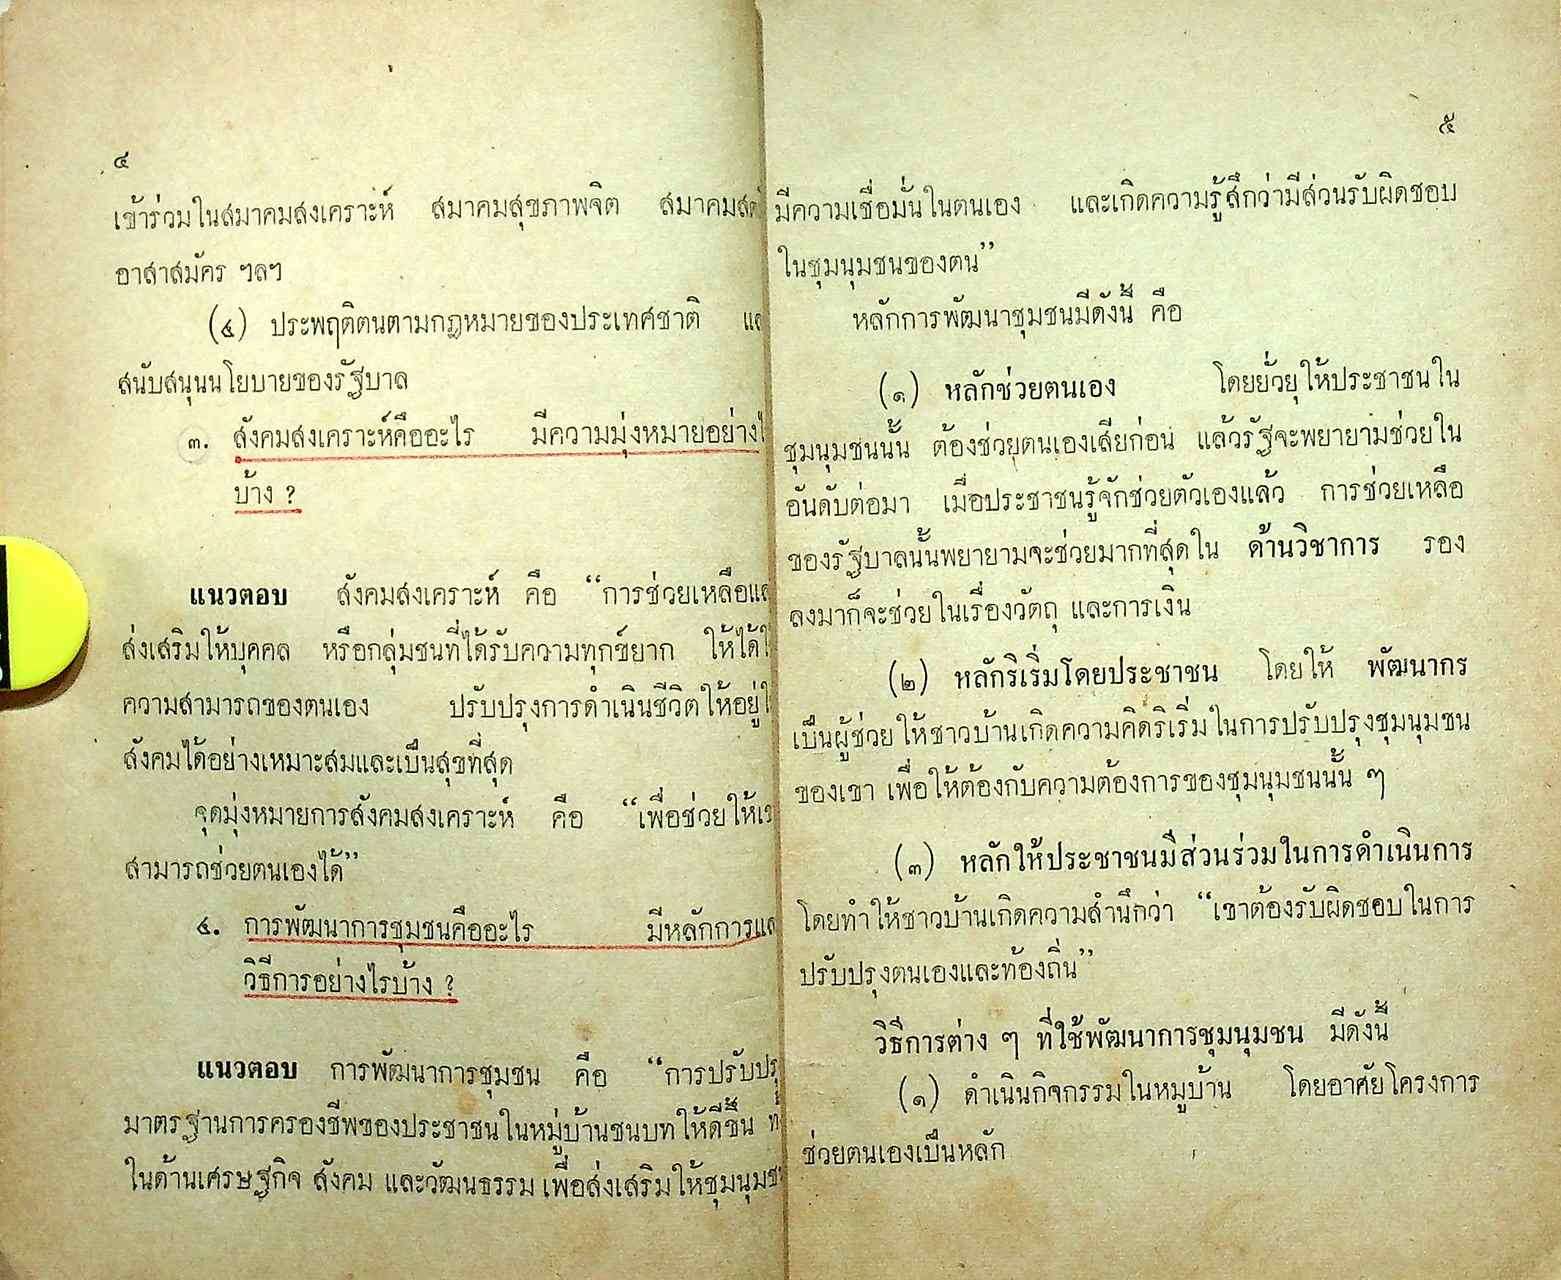 ๔
เข้าร่วมในสมาคมสงเคราะห์ สมาคมสุขภาพจิต
อาสาสมัคร ฯลฯ
(๔) ประพฤติตนตามกฎหมายของประเทศชาติ
สนับสนุนนโยบายของรัฐบาล
๓. สังคมสงเคราะห์คืออะไร มีความมุ่งหมายอย่าง
บ้าง ?
แนวตอบ สังคมสงเคราะห์ คือ “การช่วยเหลือ
ส่งเสริมให้บุคคล หรือกลุ่มชนที่ได้รับความทุกข์ยาก ให้ได้
ความสามารถของตนเอง ปรับปรุงการดำเนินชีวิตให้อยู่
สังคมได้อย่างเหมาะสมและเป็นสุขที่สุด
จุดมุ่งหมายการสังคมสงเคราะห์ คือ “เพื่อช่วยให้
สามารถช่วยตนเองได้”
๔. การพัฒนาการชุมชนคืออะไร มีหลักการ
วิธีการอย่างไรบ้าง ?
แนวตอบ การพัฒนาการชุมชน คือ “การปรับ
มาตรฐานการครองชีพของประชาชนในหมู่บ้านชนบทให้ดีขึ้น
ในด้านเศรษฐกิจ สังคม และวัฒนธรรม เพื่อส่งเสริมให้ชุมนุม
๕
มีความเชื่อมั่นในตนเอง และเกิดความรู้สึกว่ามีส่วนรับผิดชอบ
ในชุมนุมชนของตน”
หลักการพัฒนาชุมชนมีดังนี้ คือ
(๑) หลักช่วยตนเอง โดยยั่วยุให้ประชาชนใน
ชุมนุมชนนั้น ต้องช่วยตนเองเสียก่อน แล้วรัฐจะพยายามช่วยใน
อันดับต่อมา เมื่อประชาชนรู้จักช่วยตัวเองแล้ว การช่วยเหลือ
ของรัฐบาลนั้นพยายามจะช่วยมากที่สุดใน ด้านวิชาการ รอง
ลงมาก็จะช่วยในเรื่องวัตถุ และการเงิน
(๒) หลักริเริ่มโดยประชาชน โดยให้ พัฒนากร
เป็นผู้ช่วยให้ชาวบ้านเกิดความคิดริเริ่มในการปรับปรุงชุมนุมชน
ของเขา เพื่อให้ต้องกับความต้องการของชุมนุมชนนั้น ๆ
(๓) หลักให้ประชาชนมีส่วนร่วมในการดำเนินการ
โดยทำให้ชาวบ้านเกิดความสำนึกว่า “เขาต้องรับผิดชอบในการ
ปรับปรุงตนเองและท้องถิ่น”
วิธีการต่าง ๆ ที่ใช้พัฒนาการชุมนุมชน มีดังนี้
(๑) ดำเนินกิจกรรมในหมู่บ้าน โดยอาศัยโครงการ
ช่วยตนเองเป็นหลัก